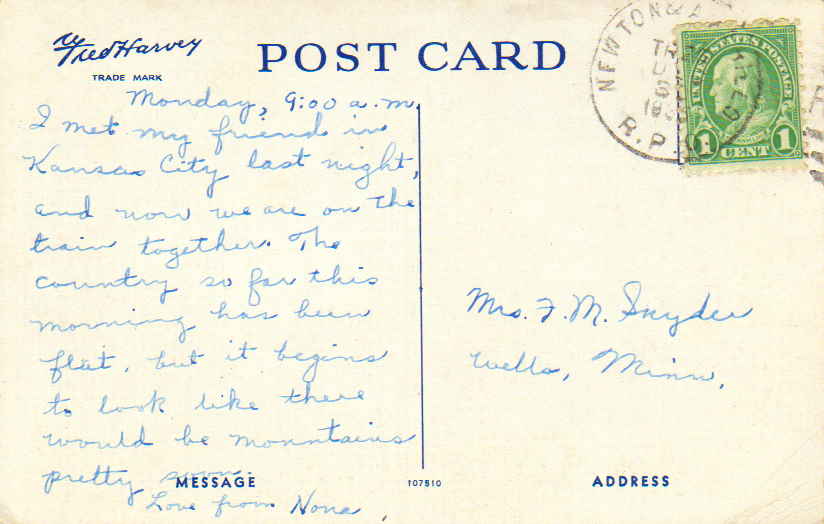 Fred Harvey
TRADE MARK
POST CARD
Monday, 9:00 a.m.
I met my friend in
Kansas City last night,
and now we are on the
train together. The
country so far this
morning has been
flat, but it begins
to look like there
would be mountains
pretty soon.
Love from Nona
MESSAGE
107510
Mrs. F. M. Snyder
Wells, Minn.
ADDRESS
NEWTON &
TR
R.P.
UNITED STATES POSTAGE
1 CENT 1